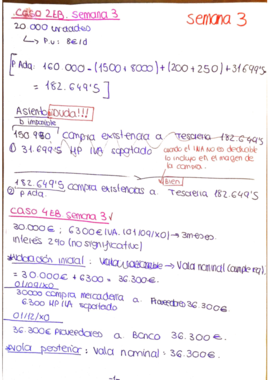 caso 2EB. semana 3
semana 3
20 000 unidades
↳ P.u: 8€/d
[P Adq: 160 000 - (1500 + 8000) + (200 + 250) + 31.699'5
= 182.649'5]
Asiento ¡Duda!!!
b imponible
150 950 compra existencia a Tesorería 182.649'5
① 31.699'5 HP IVA soportado
cuando el IVA no es deducible
lo incluyo en el margen de
la compra.
Bien!
② 182.649'5 compra existencias a Tesorería 182.649'5
P Adq.
CASO 4EB semana 3
30.000€ ; 6300€ IVA. (01/09/X0) → 3 meses
interés 290 (no significativo)
Valoración inicial: → Vala nominal
= 30.000€ + 6300 = 36.300€.
01/09/X0
30000 compra mercadería a Proveedores 36.300€
6300 HP IVA soportado
01/12/X0
36.300€ Proveedores a Banco 36.300€.
Vala posterior: Vala nominal = 36.300€.
-1-